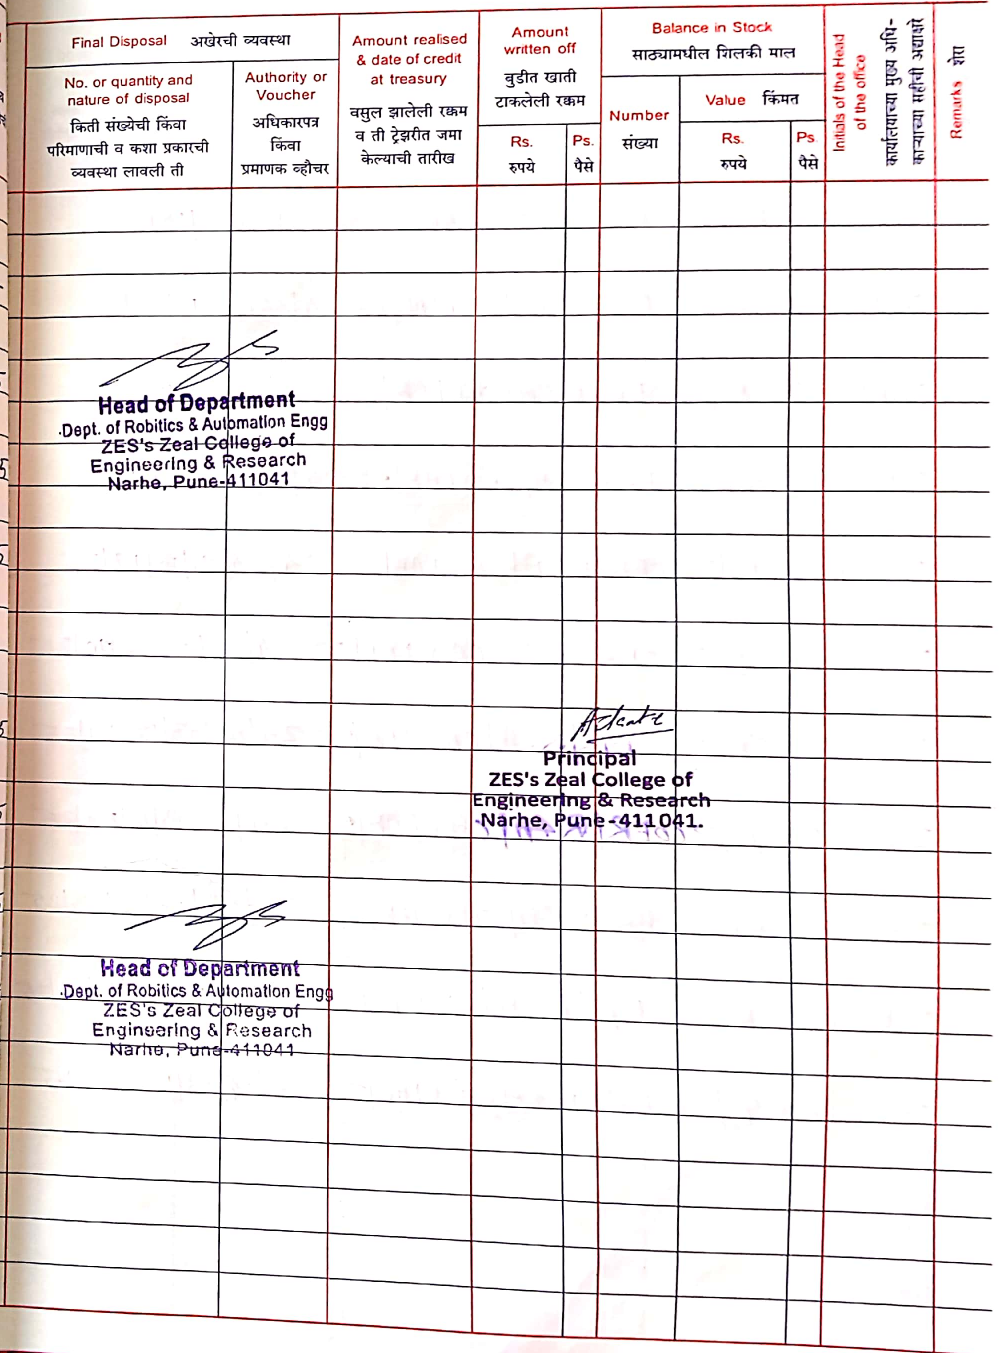 Final Disposal अखेरची व्यवस्था
No. or quantity and
nature of disposal
किती संख्येची किंवा
परिमाणाची व कशा प्रकारची
व्यवस्था लावली ती
Authority or
Voucher
अधिकारपत्र
किंवा
प्रमाणक व्हौचर
Amount realised
& date of credit
at treasury
वसुल झालेली रक्कम
व ती ट्रेझरीत जमा
केल्याची तारीख
Amount
written off
बुडीत खाती
टाकलेली रक्कम
Rs.
रुपये
Ps.
पैसे
Balance in Stock
साठ्यामधील शिलकी माल
Number
संख्या
Value किंमत
Rs.
रुपये
Ps
पैसे
Initials of the Head
of the office
कार्यालयाच्या मुख्य अधि-
काऱ्याच्या सहीची अद्याक्षरे
Remarks शेरा
Head of Department
Dept. of Robitics & Automation Engg
ZES's Zeal College of
Engineering & Research
Narhe, Pune-411041
Principal
ZES's Zeal College of
Engineering & Research
Narhe, Pune-411041.
Head of Department
Dept. of Robitics & Automation Engg
ZES's Zeal College of
Engineering & Research
Narhe, Pune-411041